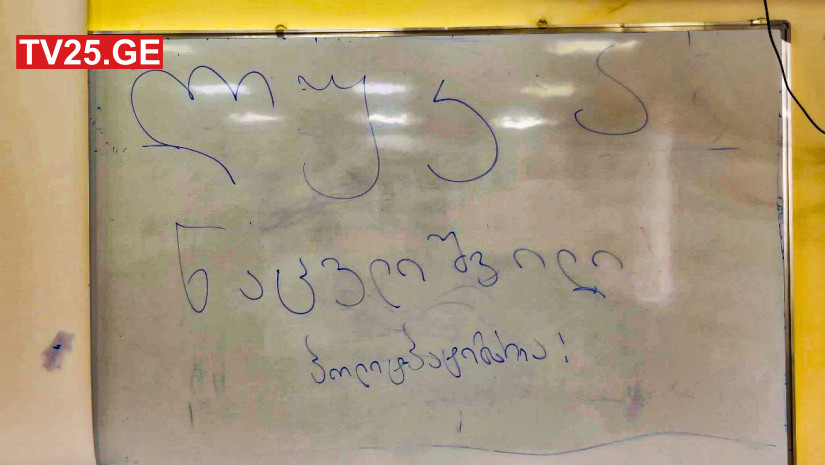 TV25.GE
ლუკა
ნაცვლიშვილი
პოლიტპატიმარია!